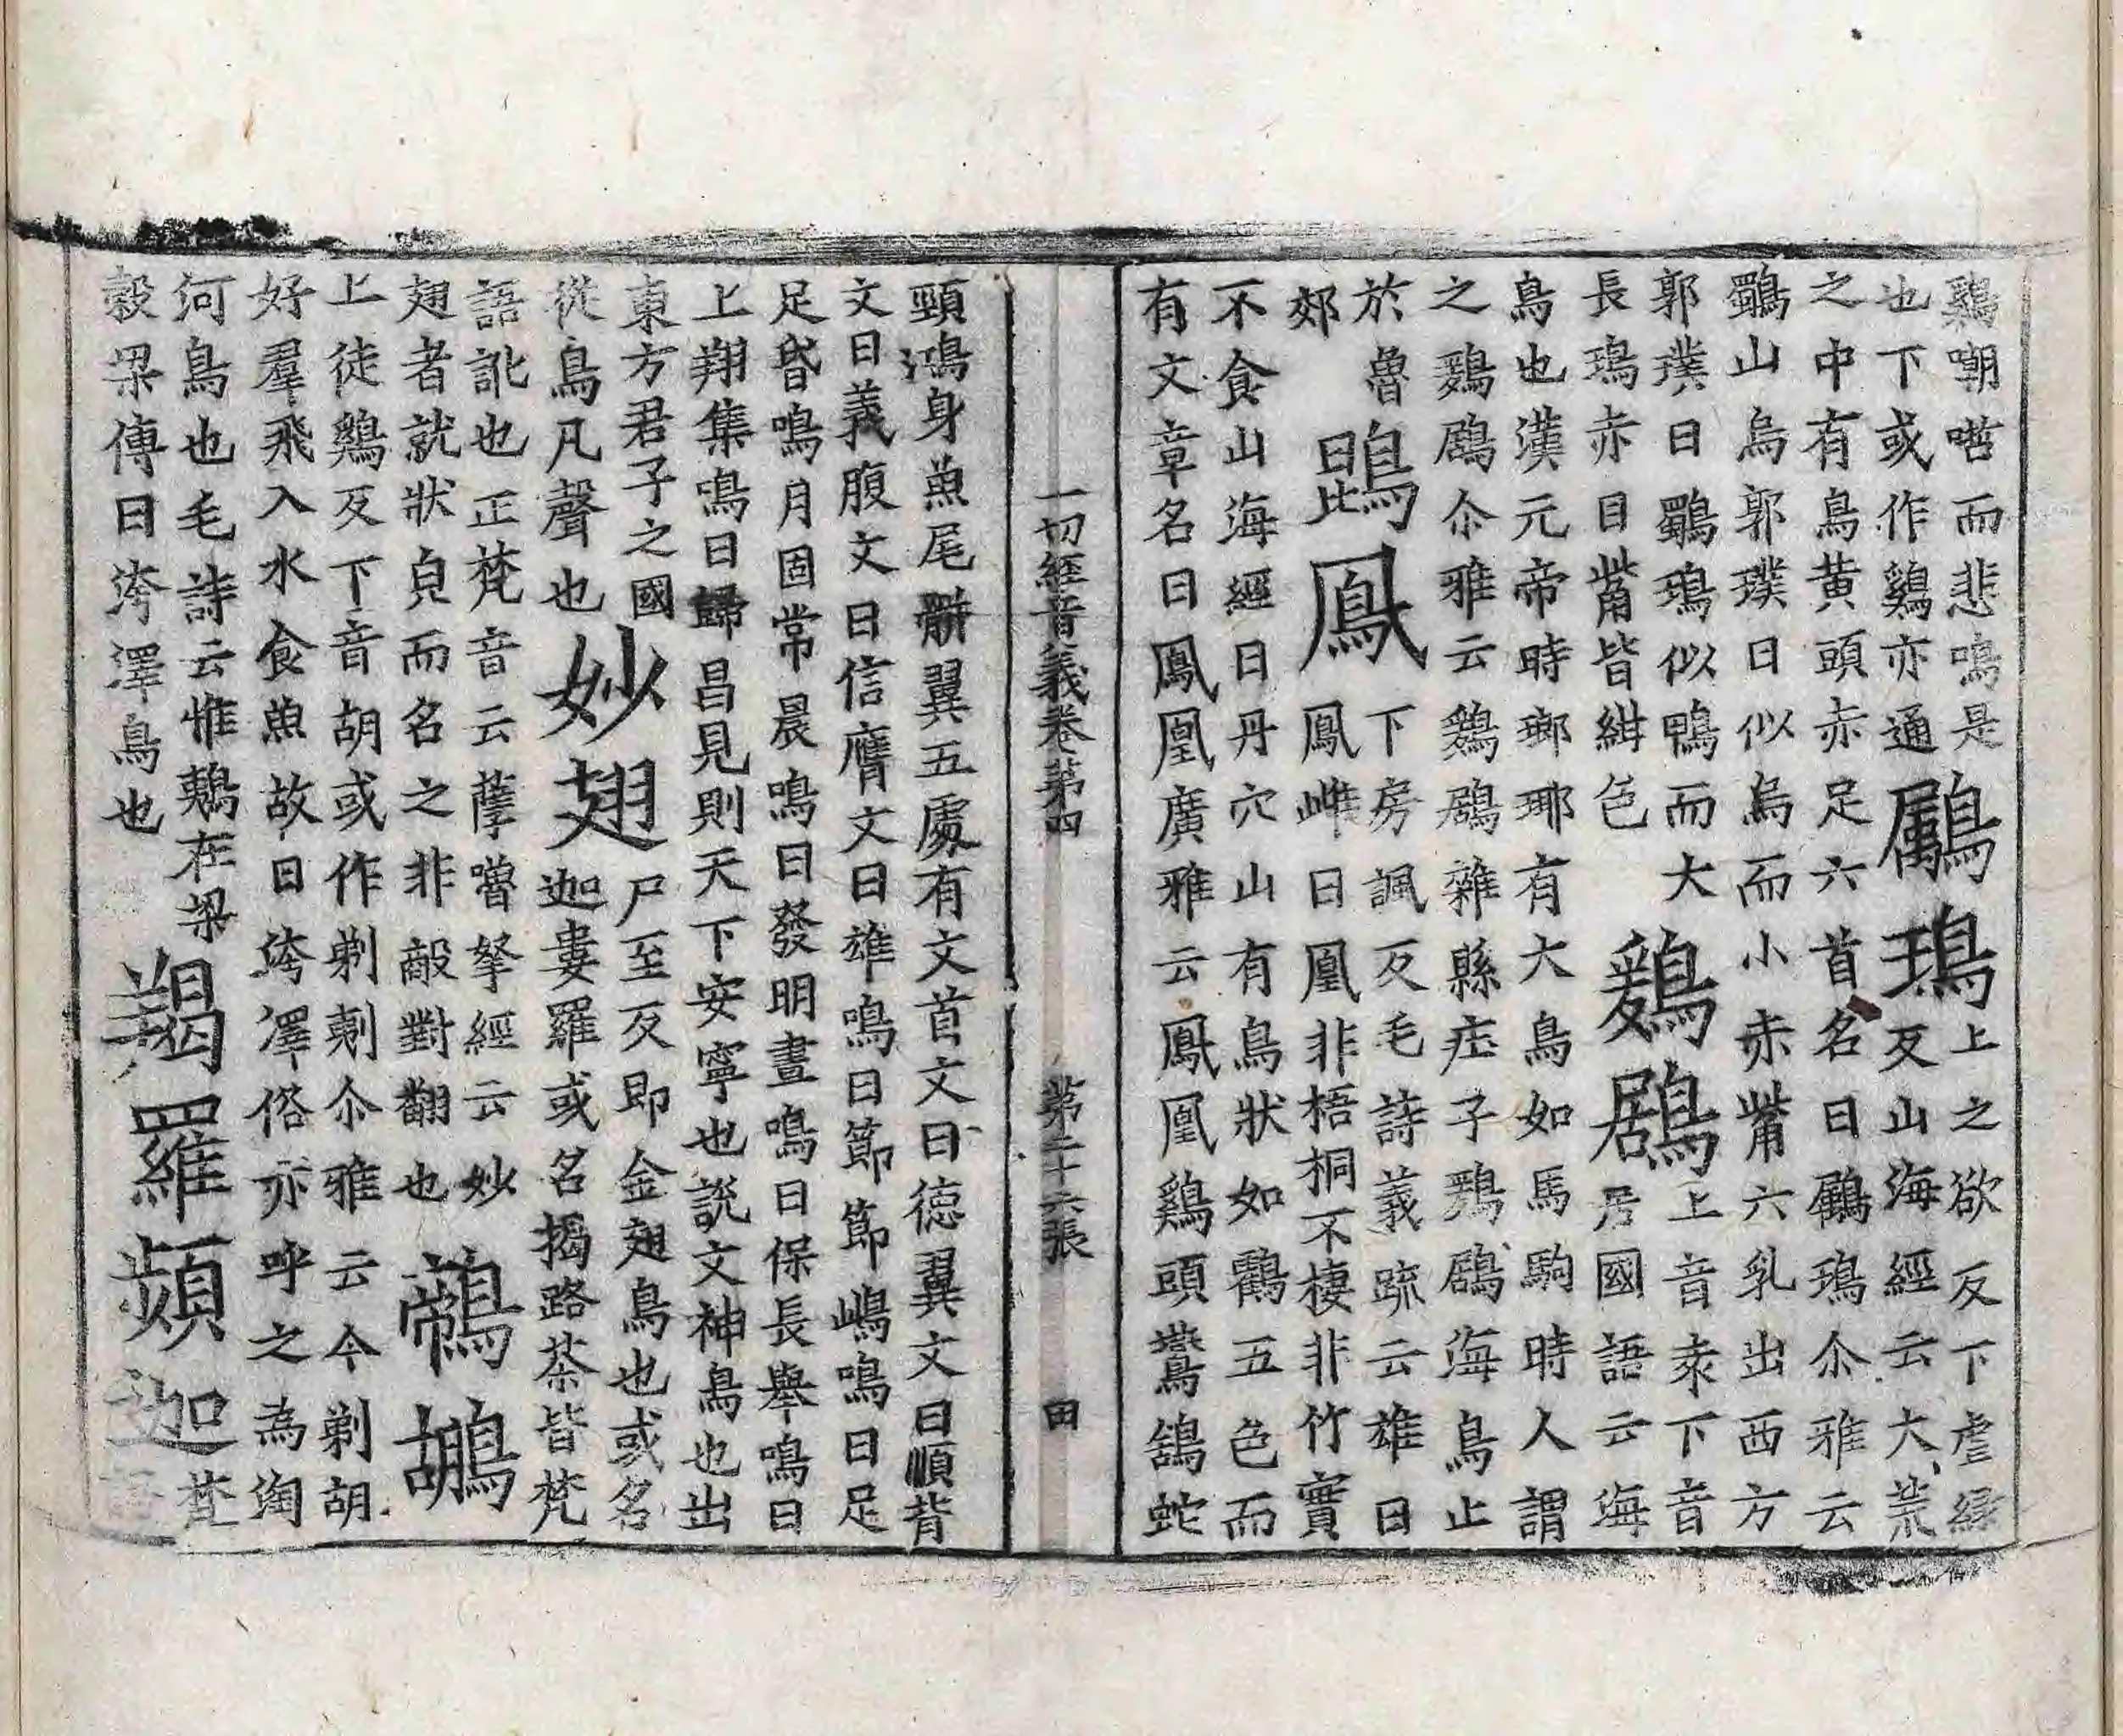 鷄嘲哳而悲鳴是
也下或作鷄亦通
鸀鳿
上之欲反下虐緑
反山海經云大荒
之中有鳥黃頭赤足六首名曰鸀鳿尒雅云
鸀山烏郭璞曰似烏而小赤觜穴乳出西方
郭璞曰鸀鳿似鴨而大
長鳿赤目觜皆紺色
鶢鶋
上音爰下音
居國語云海
鳥也漢元帝時瑯琊有大鳥如馬駒時人謂
之鶢鶋尒雅云鶢鶋雜縣莊子鶢鶋海鳥止
於魯
郊
鵾鳳
下房諷反毛詩義疏云雄曰
鳳雌曰凰非梧桐不棲非竹實
不食山海經曰丹穴山有鳥狀如鸖五色而
有文章名曰鳳凰廣雅云鳳凰鷄頭鷰鵠蛇
一切經音義卷第四 第二十六張 田
頸鴻身魚尾骿翼五處有文首文曰德翼文曰順背
文曰義腹文曰信膺文曰雄鳴曰節節嶋鳴曰足
足昏鳴月固常晨鳴曰發明晝鳴曰保長舉鳴曰
上翔集鳴曰歸昌見則天下安寧也說文神鳥也出
東方君子之國
從鳥凡聲也
妙翅
尸至反即金翅鳥也或名
迦婁羅或名揭路荼皆梵
語訛也正梵音云蘖嚕拏經云妙
翅者就狀皃而名之非敵對翻也
鵜鶘
上徒鷄反下音胡或作剃尒雅云今剃胡
好羣飛入水食魚故曰洿澤俗亦呼之為淘
河鳥也毛詩云惟鵜在梁
穀梁傳曰洿澤鳥也
羯羅頻迦
梵